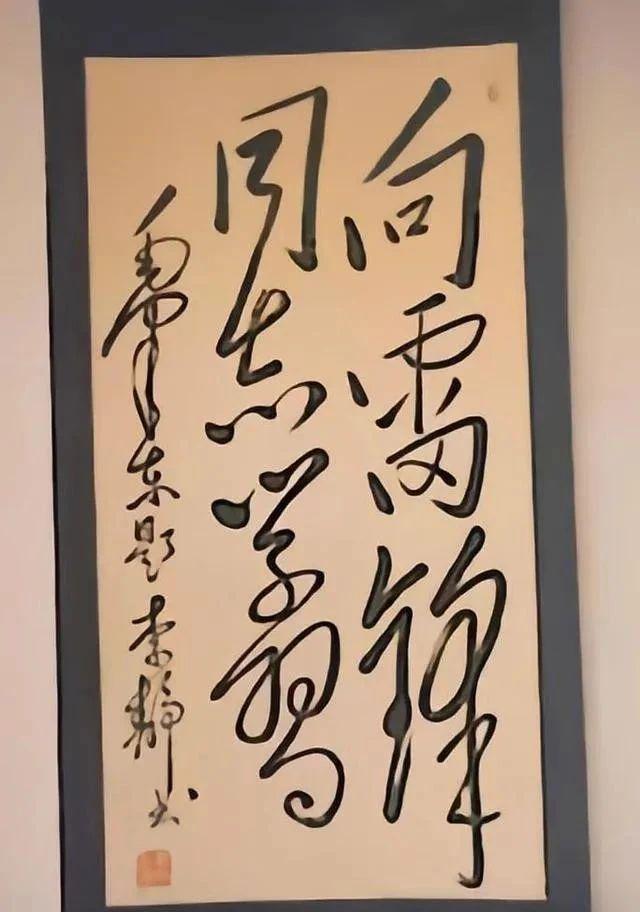 向雷锋
同志学习
毛泽东题 李静书